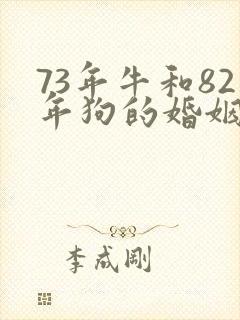 73年牛和82
年狗的婚姻
李成刚